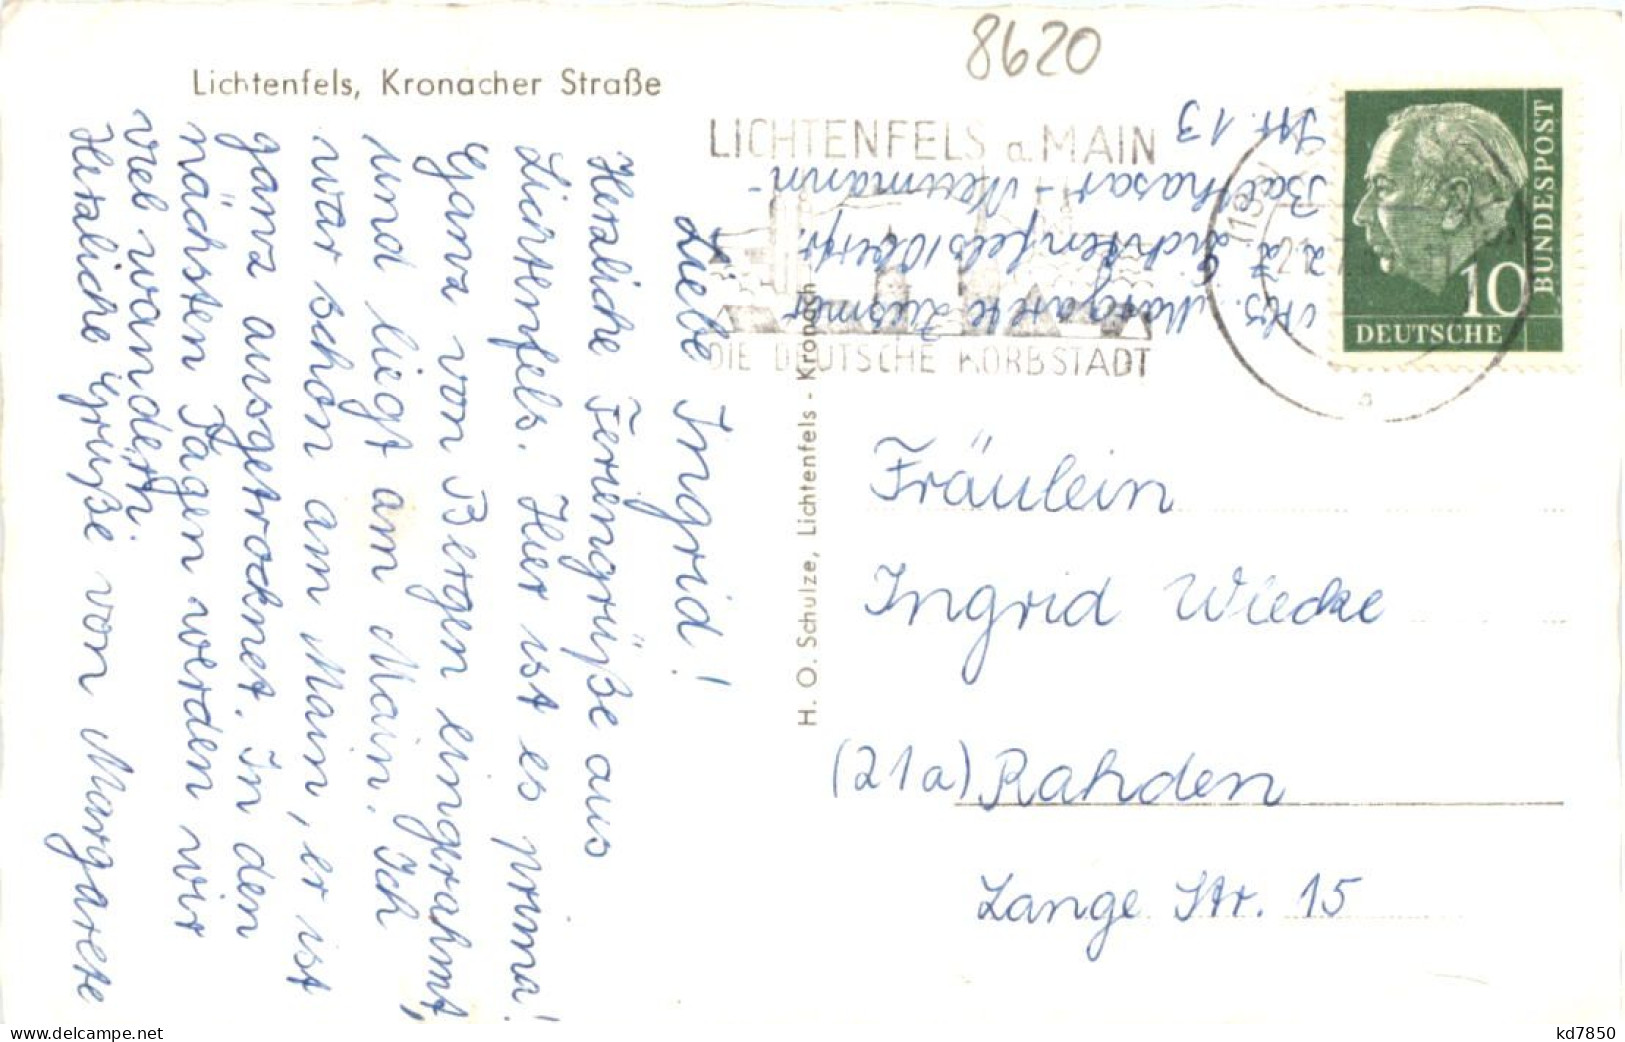 8620
Lichtenfels, Kronacher Straße
Liebe Ingrid!
Herzliche Feriengrüße aus
Lichtenfels. Hier ist es prima!
Ganz von Bergen eingerahmt,
und liegt am Main. Ich
war schon am Main, er ist
ganz ausgetrocknet. In den
nächsten Tagen werden wir
viel wandern.
Herzliche Grüße von Margarete
LICHTENFELS a. MAIN
DIE DEUTSCHE KORBSTADT
Abs. Margarete
z. Z. Lichtenfels/Oberfr.
Balthasar-Neumann-
Str. 13
H. O. Schulze, Lichtenfels - Kronach
10
DEUTSCHE
BUNDESPOST
Fräulein
Ingrid Wiecke
(21a) Rahden
Lange Str. 15
www.delcampe.net
kd7850